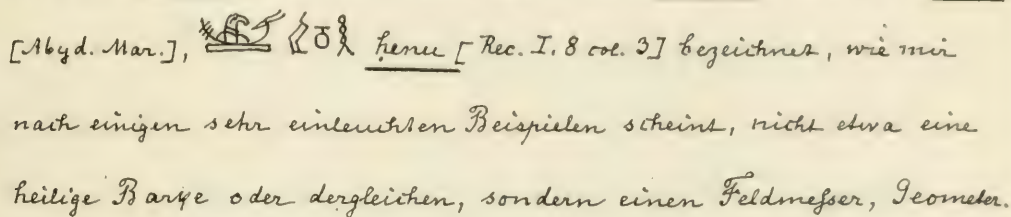 [Abyd. Mar.], ḥenu [Rec. I. 8 col. 3] bezeichnet, wie mir
nach einigen sehr einleuchten Beispielen scheint, nicht etwa eine
heilige Barke oder dergleichen, sondern einen Feldmeſser, Geometer.